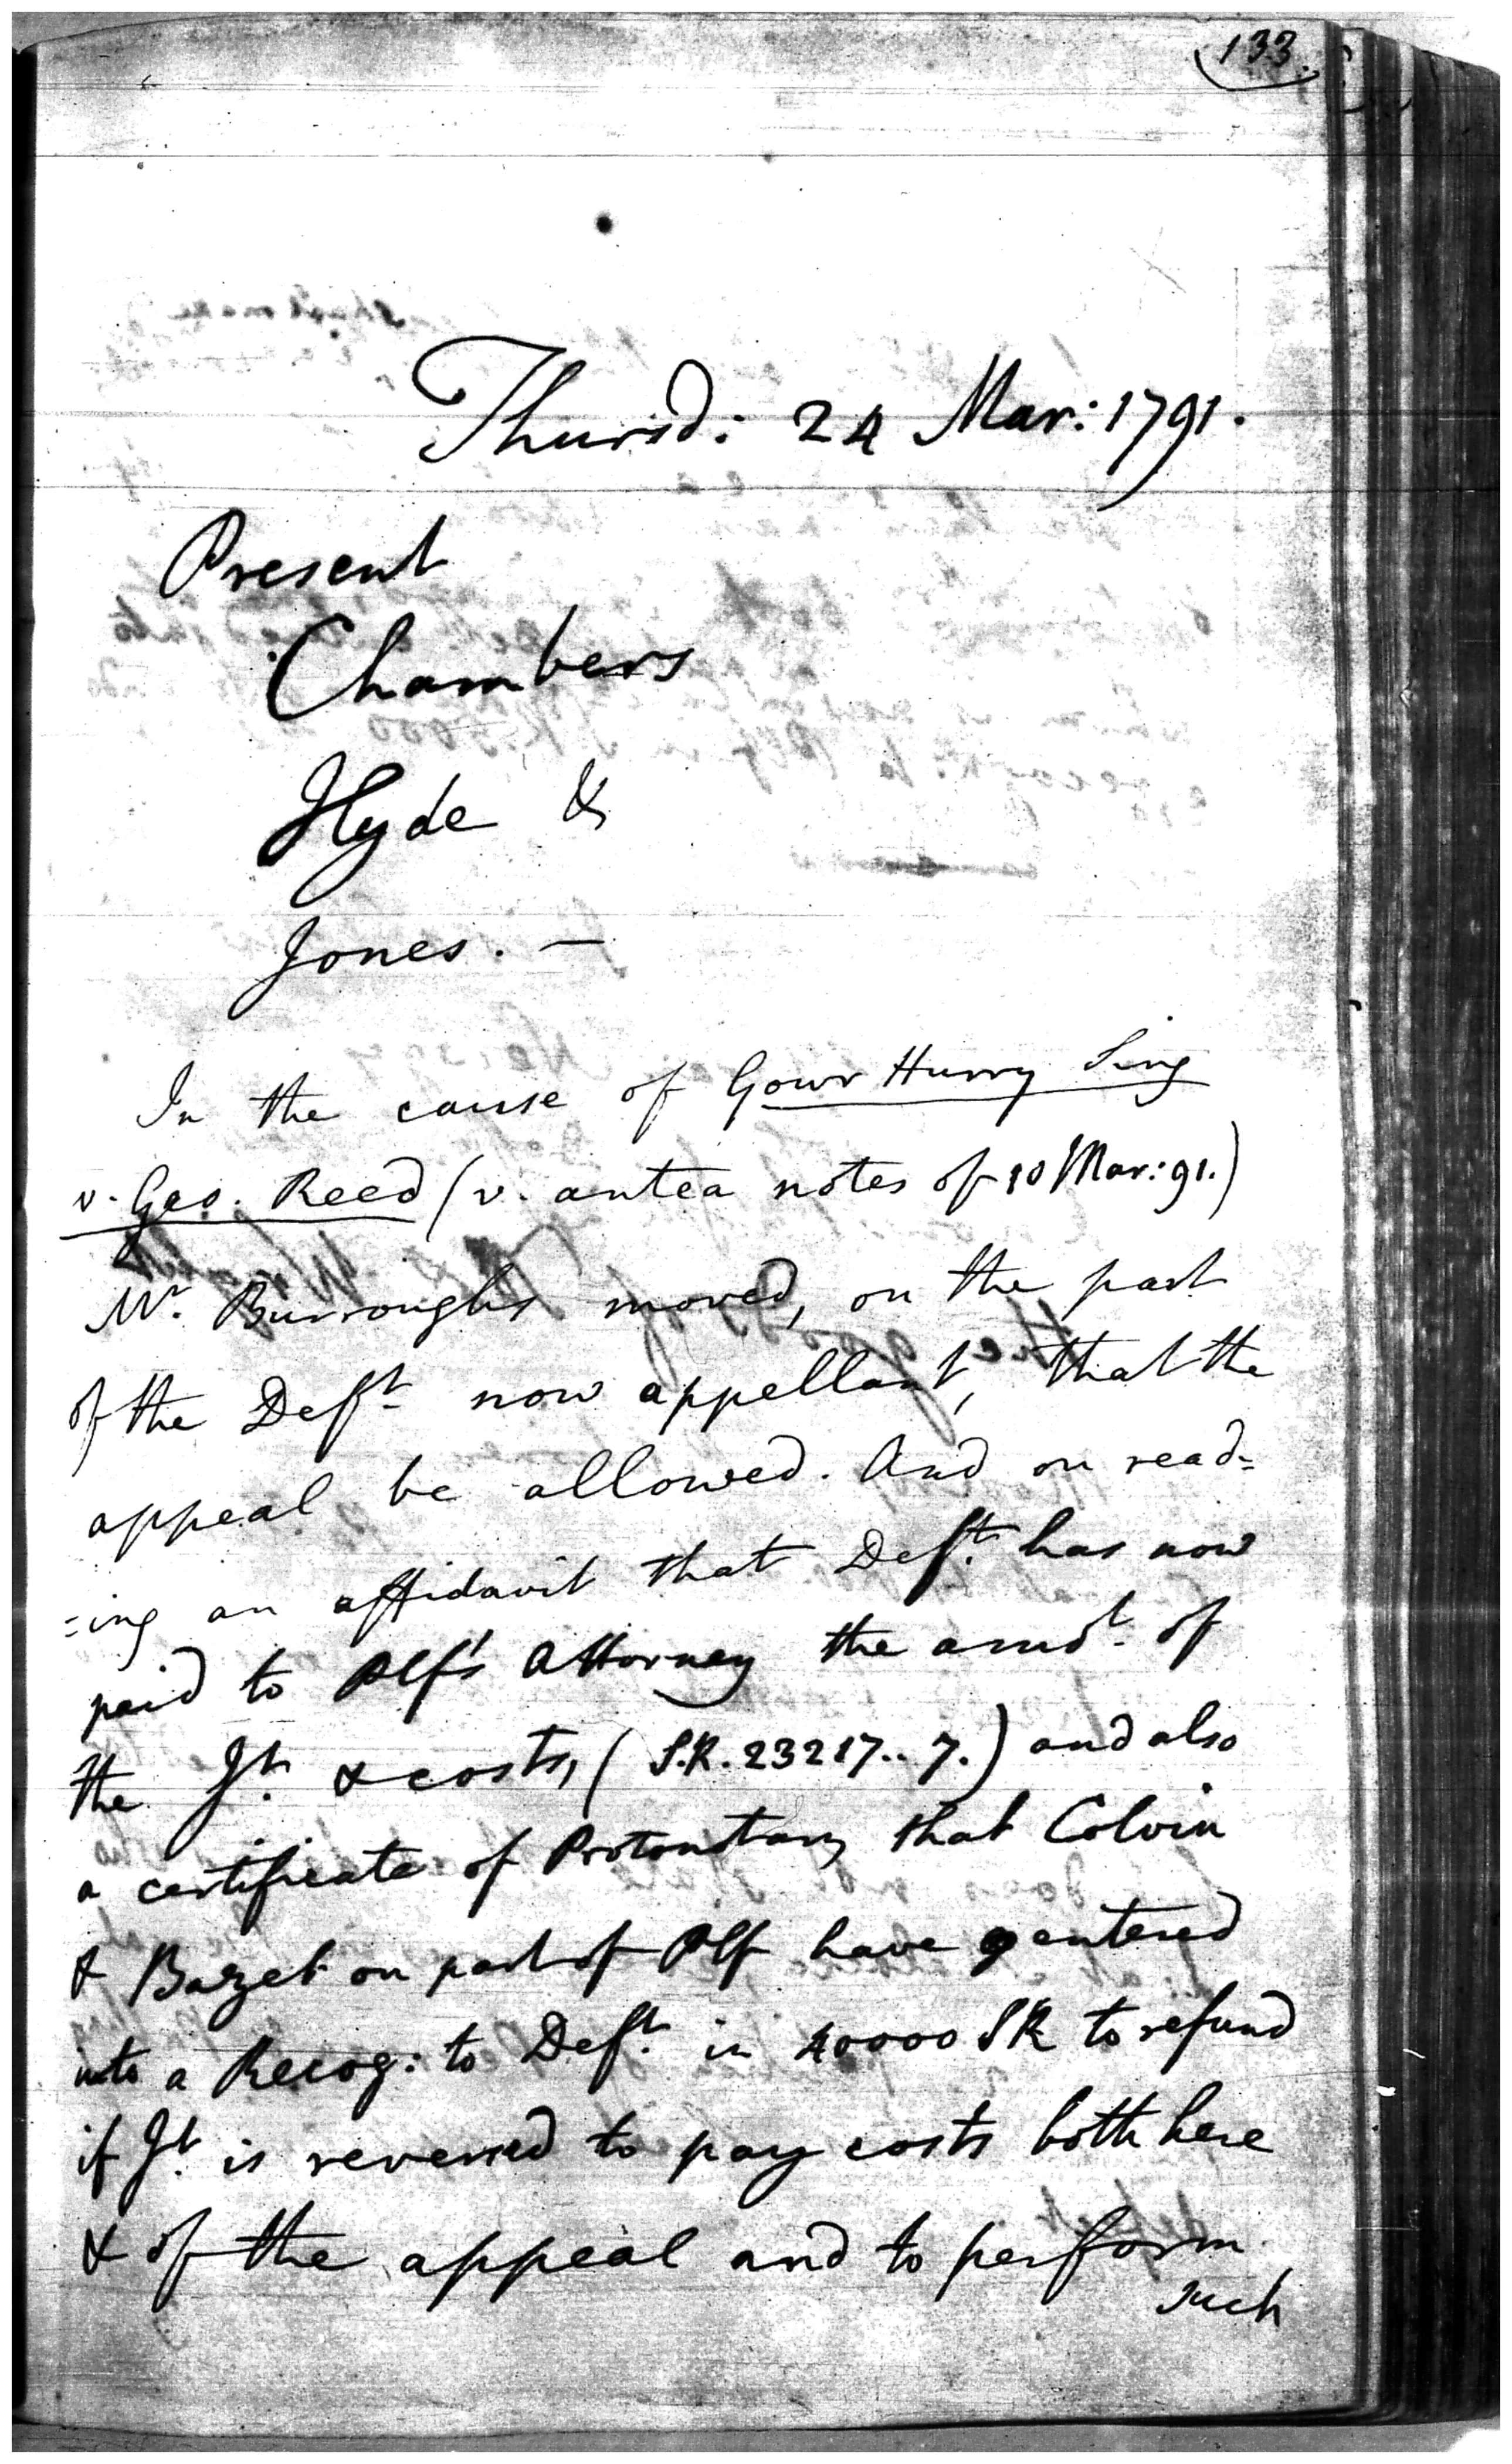 133.
Thursd: 24 Mar: 1791.
Present
Chambers
Hyde &
Jones. —
In the cause of Gowr Hurry Sing
v. Geo. Reed (v. antea notes of 10 Mar: 91.)
Mr. Burroughs moved, on the part
of the Deft. now appellant, that the
appeal be allowed. And on read=
=ing an affidavit that Deft. has now
paid to Plf's Attorney the amot. of
the Jt. & costs, (S.R. 23217..7.) and also
a certificate of Protonotary that Colvin
& Bazet on part of Plf have entered
into a Recog: to Deft. in 40000 SR to refund
if Jt. is reversed to pay costs both here
& of the appeal and to perform
such